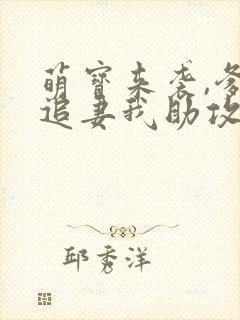 萌宝来袭,爹
追妻我助攻
邱秀洋